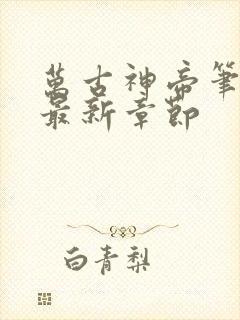 萬古神帝筆
最新章節
白青梨